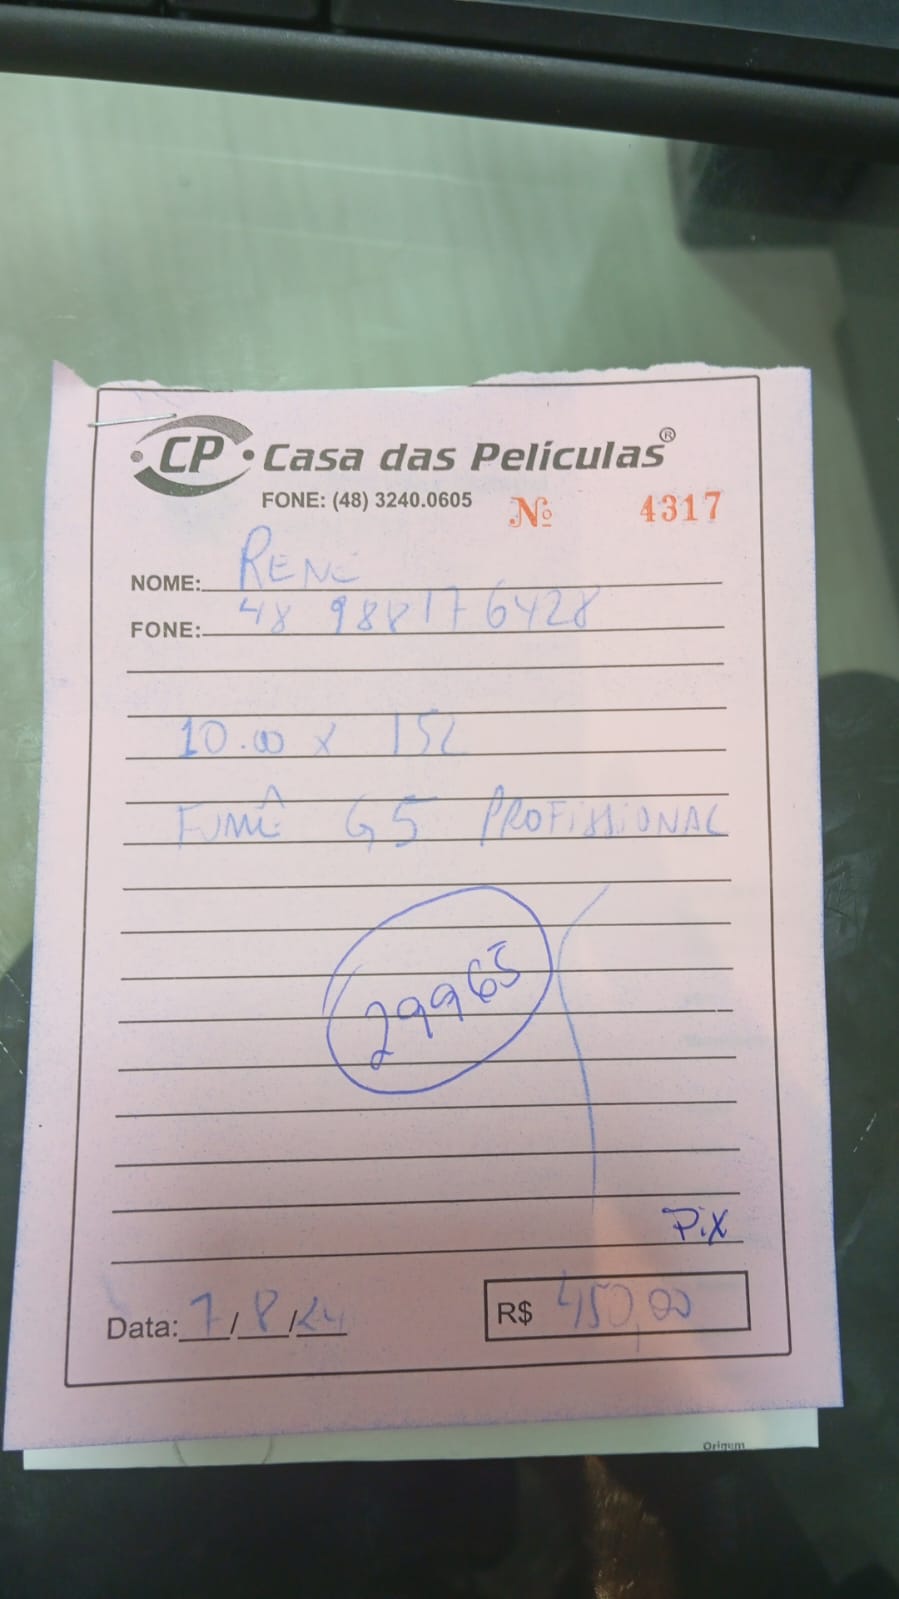 CP Casa das Películas®
FONE: (48) 3240.0605 Nº 4317
NOME: RENE
FONE: 48 988176428
10.00 x 152
FUMÊ G5 PROFISSIONAL
29965
Pix
Data: 7/8/24 R$ 450,00
Origem